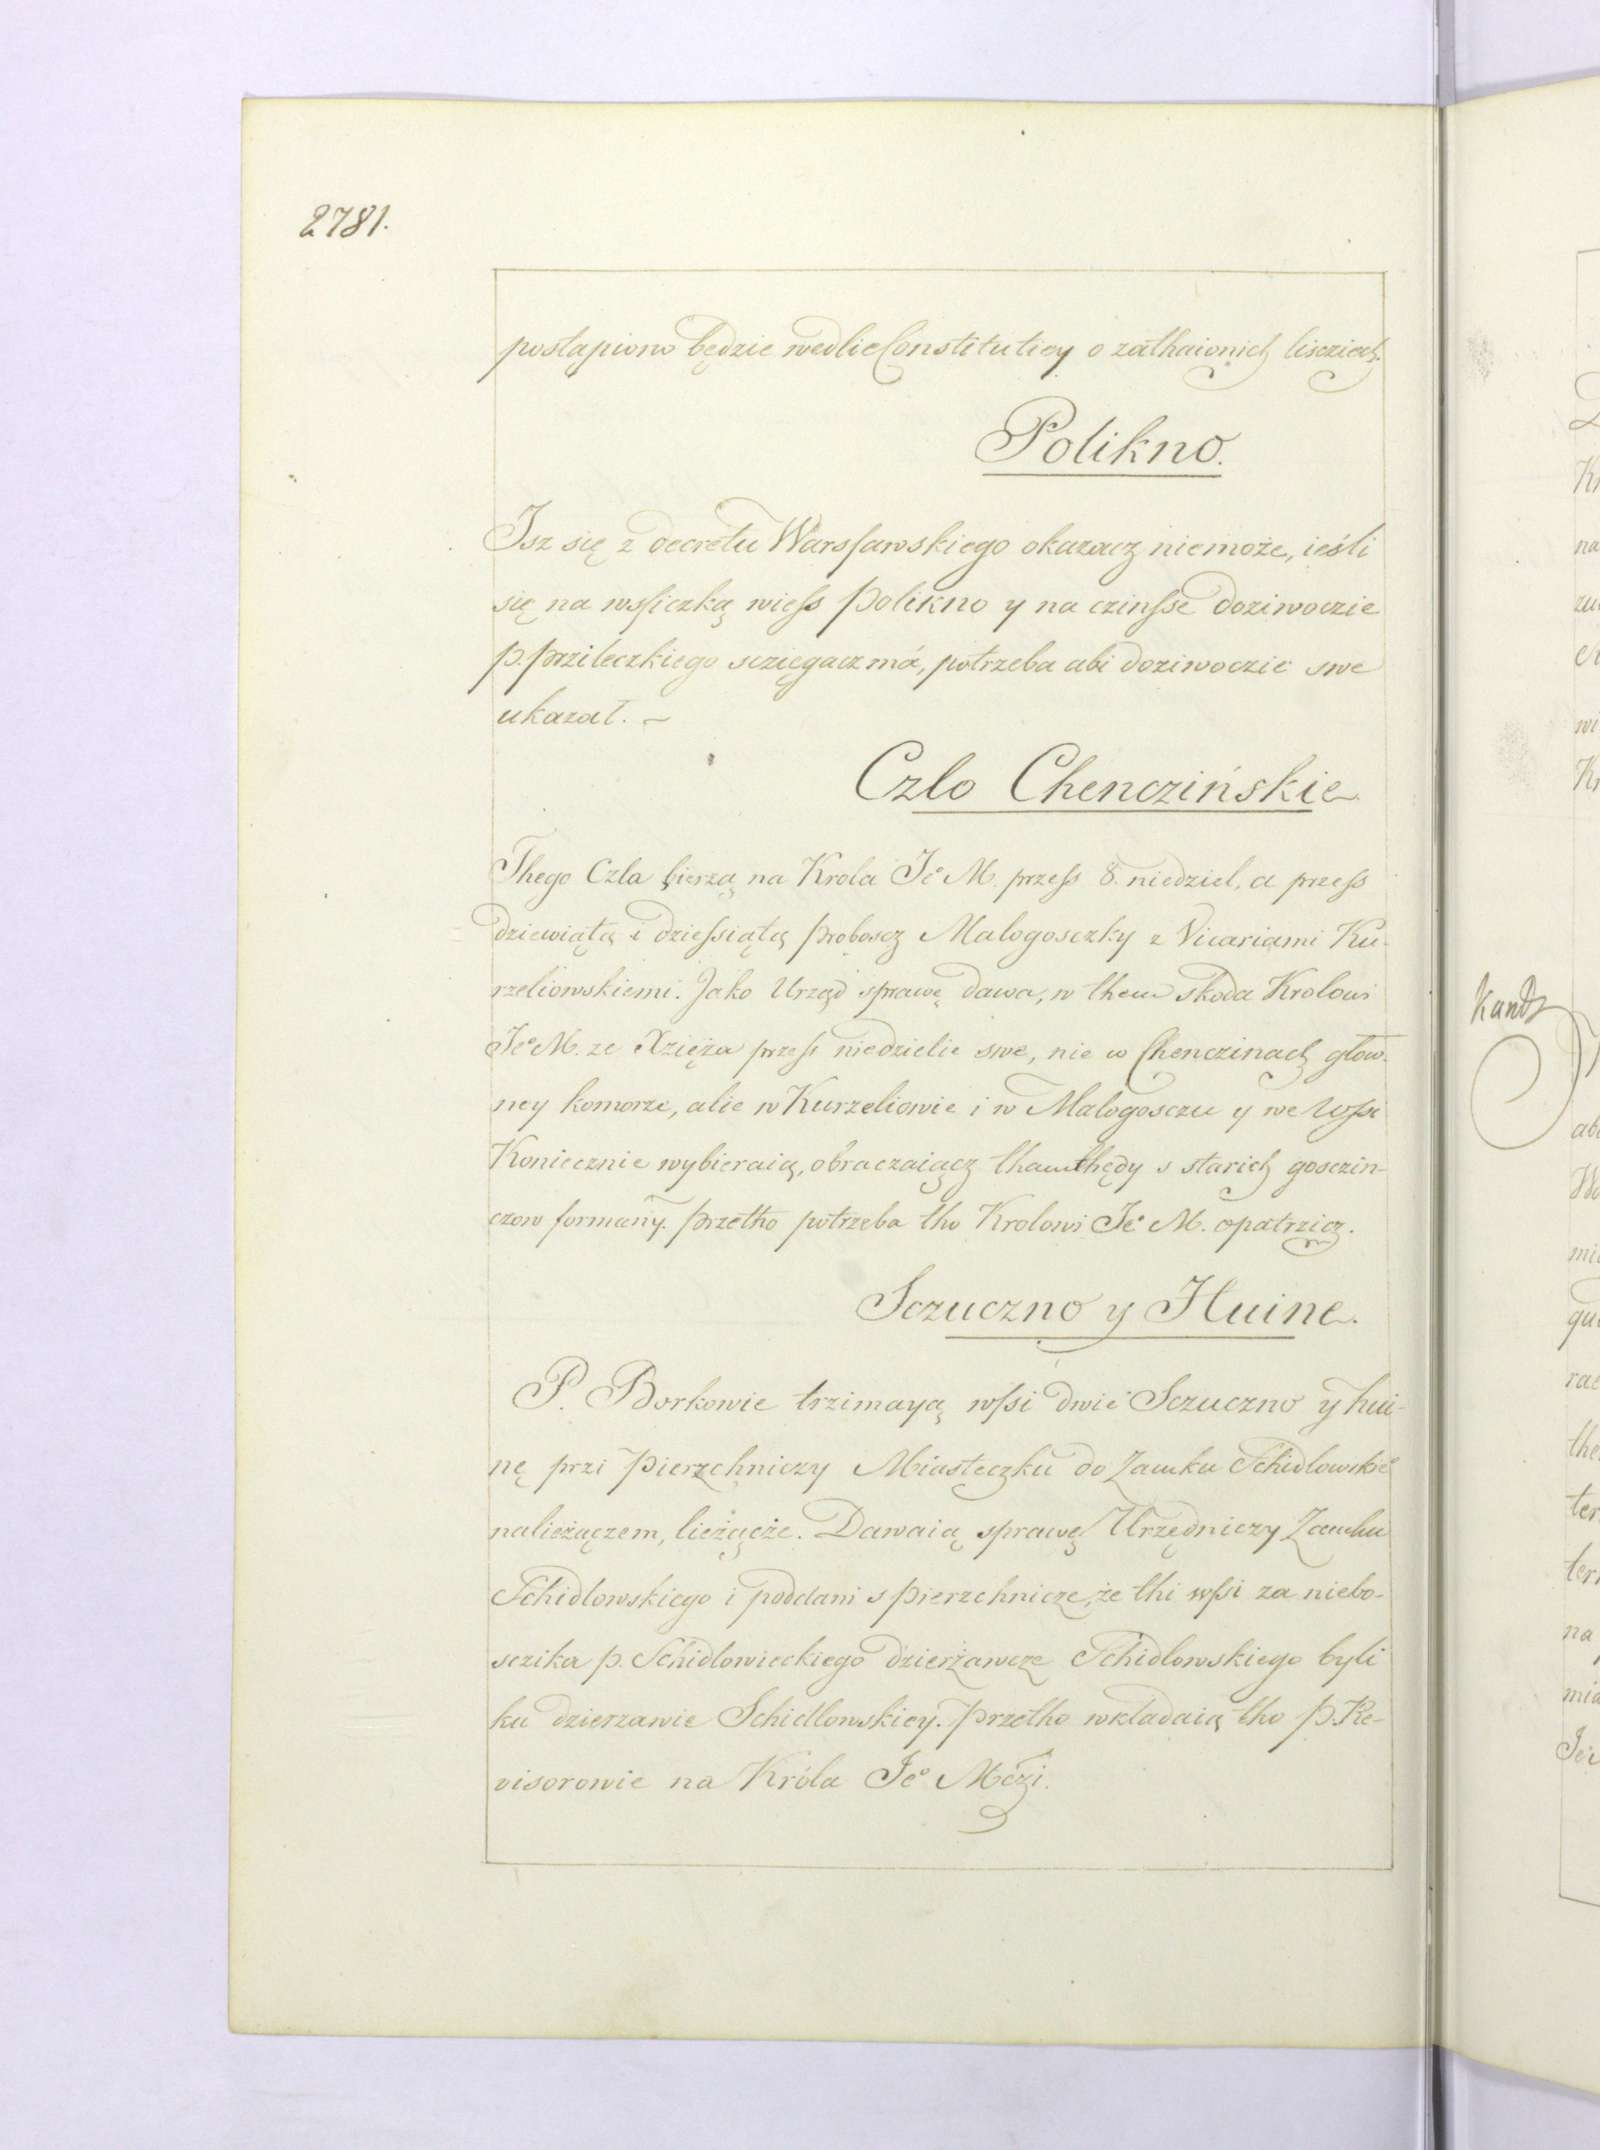 2781.
postapiono będzie wedlie Constitutiey o zathaionich liscziech.
Polikno.
Isz się z decretu Warsſawskiego okazacz niemoże, ieśli
się na wsſiczką wieſs Polikno y na czinſse doziwoczie
P. Przileczkiego scziegacz má, potrzeba abi doziwoczie swe
ukazał. ~
Czlo Chenczińskie
Thego Czla bierzą na Krola Je° M. przeſs 8. niedziel, a przeſs
dziewiątą i dzieſsiątą Proboscz Malogosczky z Vicariami Ku-
rzeliowskiemi. Jako Urząd sprawę dawa, w them skoda Krolowi
Je° M. ze Xzięża przeſs niedzielie swe, nie w Chenczinach głow-
ney komorze, alie w Kurzeliowie i w Malogosczu y we Wſsi
Koniecznie wybieraią, obraczaiącz thamthędy s starich gosczin-
czow formany. Przetho potrzeba tho Krolowi Je° M. opatrzicz.
Sczuczno y Huine.
P. Borkowie trzimayą wſsi dwie Sczuczno y hui-
nę przi Pierzchniczy Miasteczku do Zamku Schidlowskie°
nalieżączem, lieżącże. Dawaią sprawę Urzędniczy Zamku
Schidlowskiego i poddani s Pierzchnicze, że thi wſsi za niebo-
sczika P. Schidlowieckiego dzierżawcze Schidlowskiego byli
ku dzierzawie Schidlowskiey. Przetho wkładaią tho P. Re-
visorowie na Króla Je° Mczi.